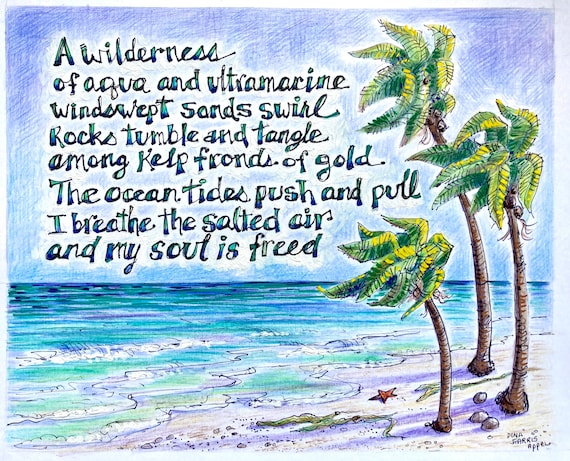 A wilderness
of aqua and ultramarine
windswept sands swirl
Rocks tumble and tangle
among kelp fronds of gold.
The ocean tides push and pull
I breathe the salted air
and my soul is freed
DINA
FARRIS
APPEL